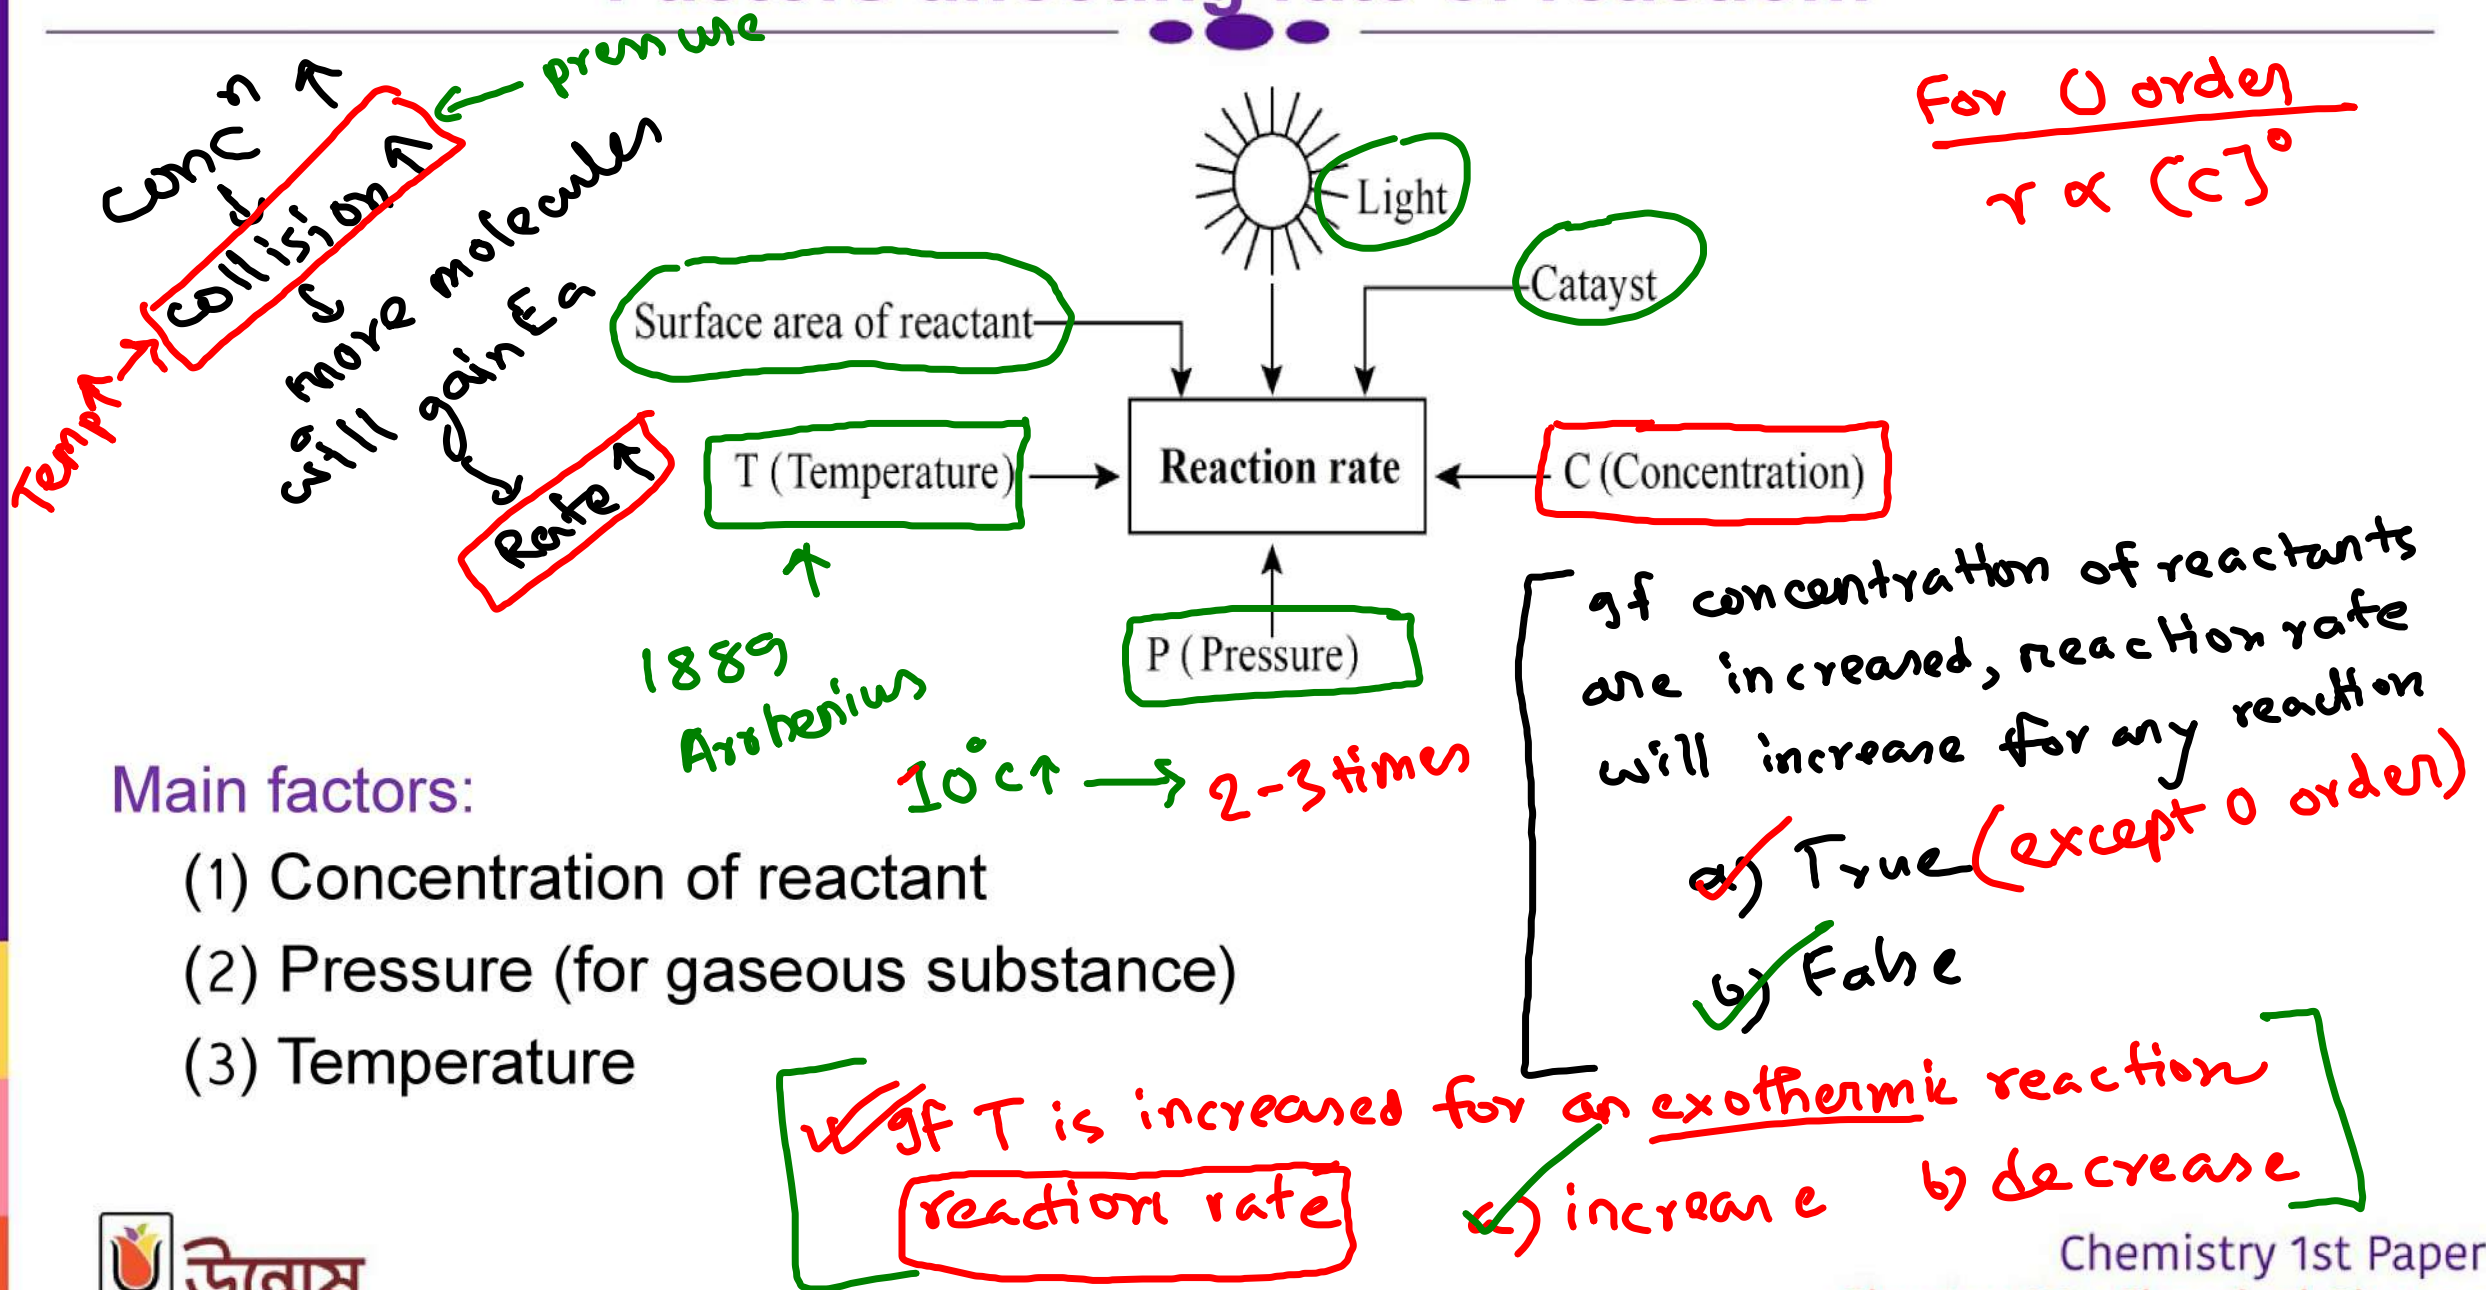 Factors affecting rate of reaction:
pressure
conc n ↑
collision ↑
more molecules
will gain Ea
Rate ↑
Temp↑
For 0 order
r ∝ [c]⁰
Light
Catayst
Surface area of reactant
T (Temperature)
Reaction rate
C (Concentration)
P (Pressure)
1889
Arrhenius
10°c↑ → 2-3 times
If concentration of reactants
are increased, reaction rate
will increase for any reaction
a) True (except 0 order)
b) False
Main factors:
(1) Concentration of reactant
(2) Pressure (for gaseous substance)
(3) Temperature
If T is increased for an exothermic reaction
reaction rate a) increase b) decrease
উন্মেষ
Chemistry 1st Paper